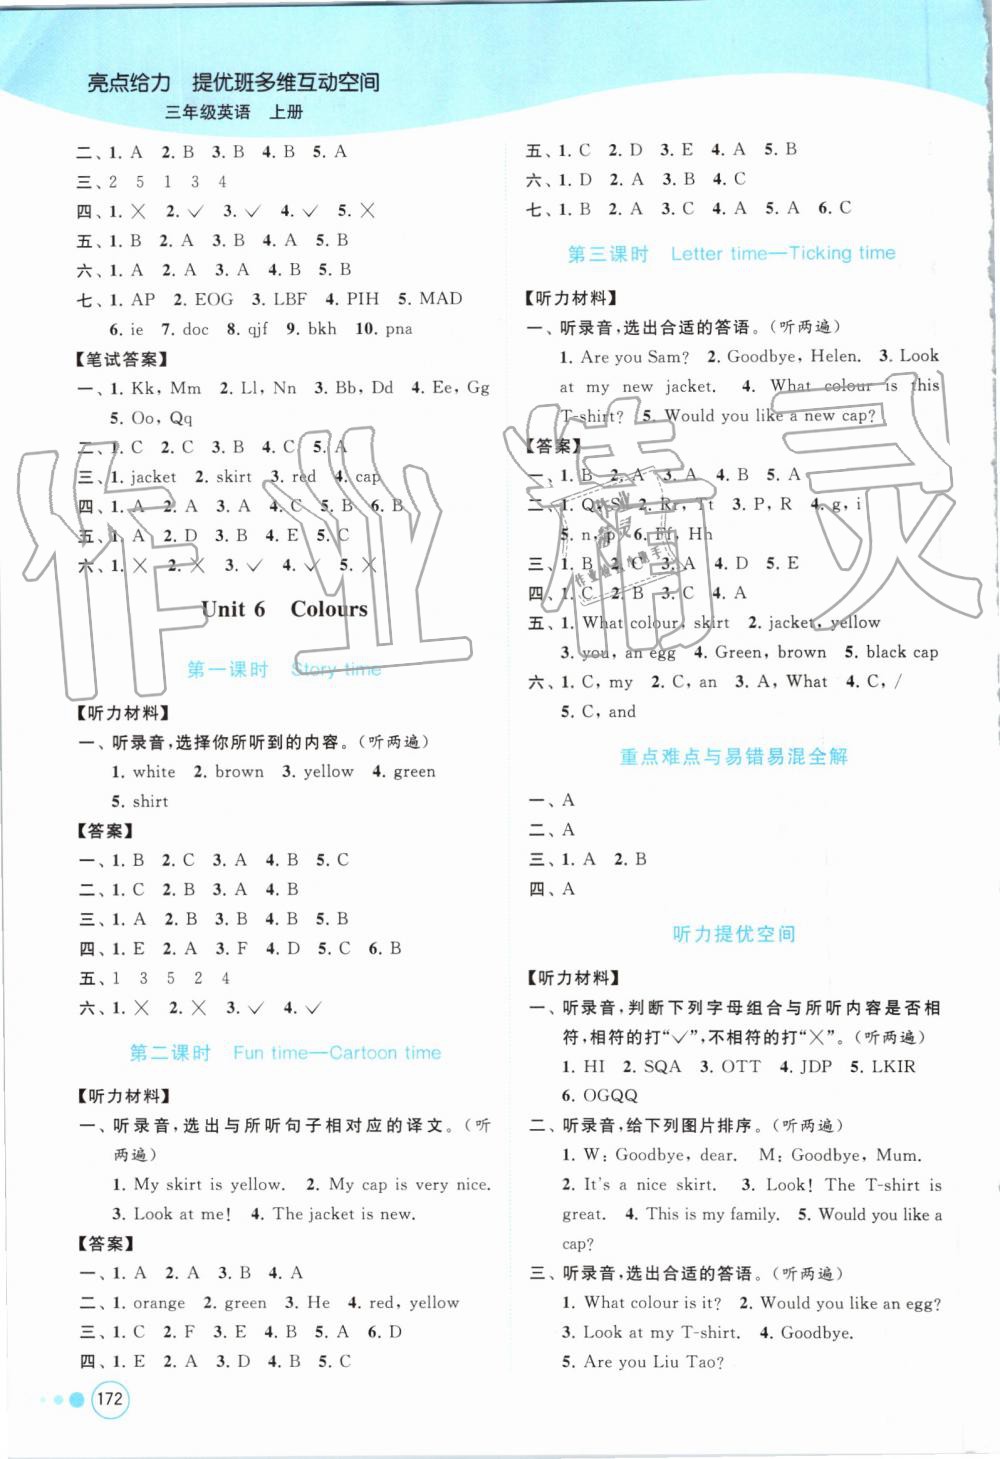 亮点给力 提优班多维互动空间
三年级英语 上册
二、1. A 2. B 3. B 4. B 5. A
三、2 5 1 3 4
四、1. ╳ 2. ✓ 3. ✓ 4. ✓ 5. ╳
五、1. B 2. A 3. B 4. A 5. B
六、1. A 2. A 3. B 4. A 5. B
七、1. AP 2. EOG 3. LBF 4. PIH 5. MAD
6. ie 7. doc 8. qjf 9. bkh 10. pna
【笔试答案】
一、1. Kk, Mm 2. Ll, Nn 3. Bb, Dd 4. Ee, Gg
5. Oo, Qq
二、1. C 2. C 3. B 4. C 5. A
三、1. jacket 2. skirt 3. red 4. cap
四、1. A 2. A 3. A 4. C 5. B 6. B
五、1. A 2. D 3. B 4. E 5. C
六、1. ╳ 2. ╳ 3. ✓ 4. ✓ 5. ╳
Unit 6 Colours
第一课时 Story time
【听力材料】
一、听录音,选择你所听到的内容。(听两遍)
1. white 2. brown 3. yellow 4. green
5. shirt
【答案】
一、1. B 2. C 3. A 4. B 5. C
二、1. C 2. B 3. B 4. A
三、1. A 2. B 3. B 4. B 5. B
四、1. E 2. A 3. F 4. D 5. C 6. B
五、1 3 5 2 4
六、1. ╳ 2. ╳ 3. ✓ 4. ✓
第二课时 Fun time—Cartoon time
【听力材料】
一、听录音,选出与所听句子相对应的译文。(听
两遍)
1. My skirt is yellow. 2. My cap is very nice.
3. Look at me! 4. The jacket is new.
【答案】
一、1. A 2. A 3. B 4. A
二、1. orange 2. green 3. He 4. red, yellow
三、1. C 2. F 3. E 4. B 5. A 6. D
四、1. E 2. A 3. D 4. B 5. C
172
五、1. C 2. D 3. E 4. A 5. B
六、1. D 2. A 3. B 4. C
七、1. B 2. A 3. C 4. A 5. A 6. C
第三课时 Letter time—Ticking time
【听力材料】
一、听录音,选出合适的答语。(听两遍)
1. Are you Sam? 2. Goodbye, Helen. 3. Look
at my new jacket. 4. What colour is this
T-shirt? 5. Would you like a new cap?
【答案】
一、1. B 2. A 3. A 4. B 5. A
二、1. Q, S 2. Rr, Tt 3. P, R 4. g, i
5. n, p 6. Ff, Hh
三、1. B 2. C 3. A 4. D 5. E
四、1. C 2. B 3. C 4. A
五、1. What colour, skirt 2. jacket, yellow
3. you, an egg 4. Green, brown 5. black cap
六、1. C, my 2. C, an 3. A, What 4. C, /
5. C, and
重点难点与易错易混全解
一、A
二、A
三、1. A 2. B
四、A
听力提优空间
【听力材料】
一、听录音,判断下列字母组合与所听内容是否相
符,相符的打“✓”,不相符的打“╳”。(听两遍)
1. HI 2. SQA 3. OTT 4. JDP 5. LKIR
6. OGQQ
二、听录音,给下列图片排序。(听两遍)
1. W: Goodbye, dear. M: Goodbye, Mum.
2. It's a nice skirt. 3. Look! The T-shirt is
great. 4. This is my family. 5. Would you like a
cap?
三、听录音,选出合适的答语。(听两遍)
1. What colour is it? 2. Would you like an egg?
3. Look at my T-shirt. 4. Goodbye.
5. Are you Liu Tao?
作业精灵